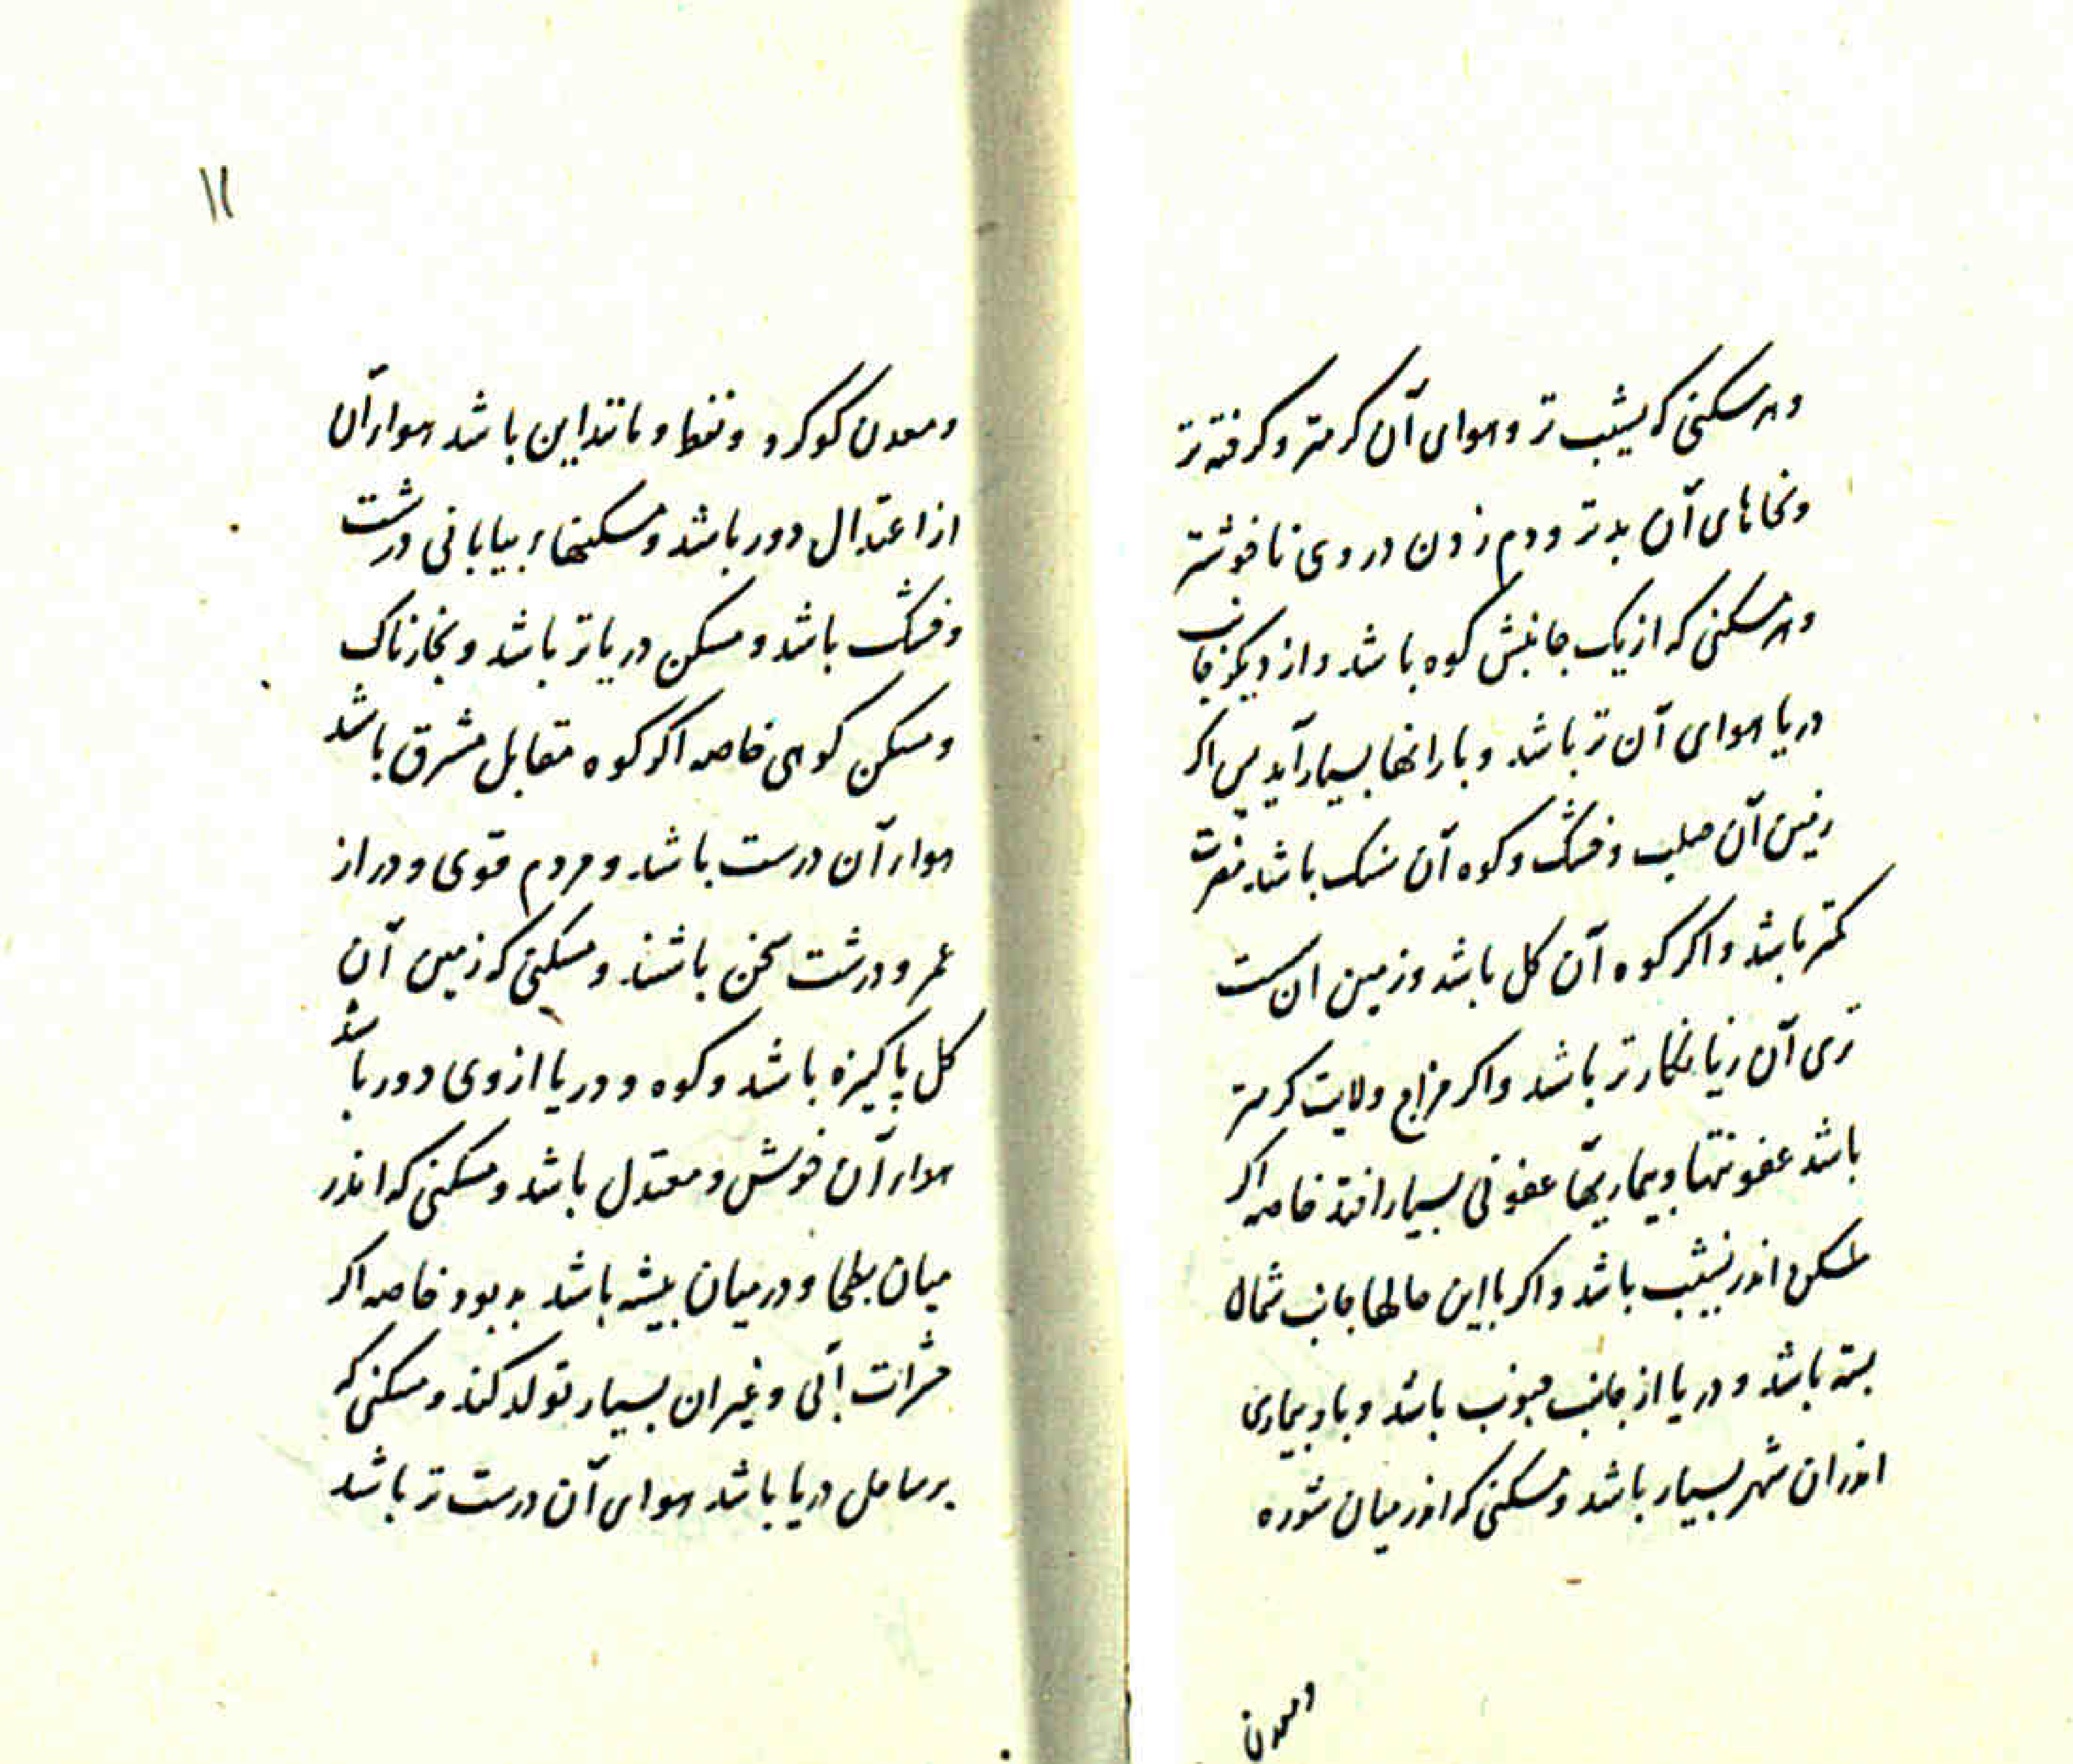 وهر مسکنی که بشیب تر و هوای آن کرمتر و کرفته تر
و بخارهای آن بدتر و دم زدن در وی ناخوشتر
و هر مسکنی که از یک جانبش کوه باشد و از دیکر جانب
دریا هوای آن تر باشد و بارانها بسیار آید پس اکر
زمین آن صلب و خشک و کوه آن سنک باشد مضرت
کمتر باشد و اکر کوه آن کل باشد و زمین ان سست
تری آن زیانکارتر باشد و اکر مزاج ولایت کرمتر
باشد عفونتها و بیماریهای عفونی بسیار افتد خاصه اکر
مسکن اندر نشیب باشد و اکر با این حالها جانب شمال
بسته باشد و دریا از جانب جنوب باشد وبا و بیماری
اندر ان شهر بسیار باشد و مسکنی که اندر میان شوره
ومعدن
۱۱
ومعدن کوکرد و نفط و مانند این باشد هواء آن
از اعتدال دور باشد و مسکنهاء بیابانی درشت
و خشک باشد و مسکن دریا تر باشد و بخارناک
و مسکن کوهی خاصه اکر کوه مقابل مشرق باشد
هواء آن درست باشد و مردم قوی و دراز
عمر و درشت سخن باشند و مسکنی که زمین آن
کل پاکیزه باشد و کوه و دریا از وی دور باشد
هواء آن خوش و معتدل باشد و مسکنی که اندر
میان بطحا و در میان بیشه باشد بد بود خاصه اکر
حشرات آبی و غیر ان بسیار تولد کند و مسکنی که
بر ساحل دریا باشد هوای آن درست تر باشد